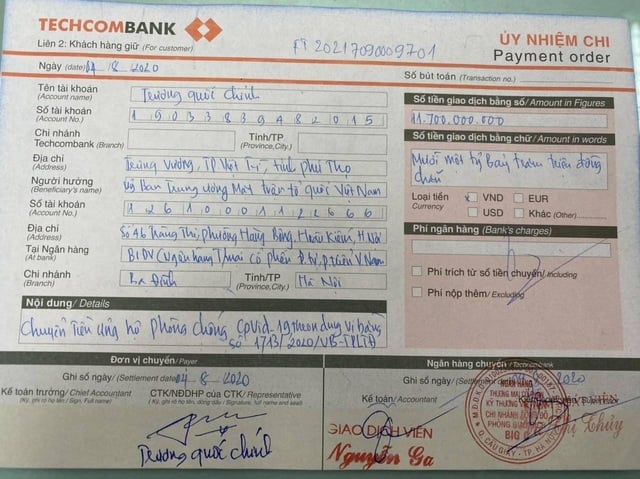 TECHCOMBANK
Liên 2: Khách hàng giữ (For customer)
FT 20217090009701
ỦY NHIỆM CHI
Payment order
Ngày (date) 04_8_2020
Số bút toán (Transaction no.)
Tên tài khoản (Account name) Trương quốc chính
Số tài khoản (Account No.) 19033839482015
Chi nhánh Techcombank (Branch)
Tỉnh/TP (Province,City.)
Địa chỉ (Address) Trưng Vương, TP Việt Trì, tỉnh phú Thọ
Người hưởng (Beneficiary's name) Uỷ Ban Trung ương Mặt trận tổ quốc Việt Nam
Số tài khoản (Account No.) 12610001122666
Địa chỉ (Address) Số 46 Tràng Thi, phường Hàng Bông, Hoàn Kiếm, H Nội
Tại Ngân hàng (At bank) BIDV (Ngân hàng T/mại cổ phần
Chi nhánh (Branch) Ba Đình
Tỉnh/TP (Province,City.) Hà Nội
Số tiền giao dịch bằng số/Amount in Figures
11.700.000.000
Số tiền giao dịch bằng chữ/Amount in words
Mười một tỷ Bảy trăm triệu đồng
chẵn
Loại tiền Currency x VND EUR
USD Khác (Other)
Phí ngân hàng (Bank's charges)
Phí trích từ số tiền chuyển/ Including
Phí nộp thêm/ Excluding
Nội dung/ Details
Chuyển tiền ủng hộ phòng chống CoVid-19 theo
số 1713/2020/VB-TPLTĐ
Đơn vị chuyển/ Payer
Ghi sổ ngày/ (Settlement date) 04_8_2020
Kế toán trưởng/ Chief Accountant
(Ký, ghi rõ họ tên / Sign, Full name)
CTK/NĐDHP của CTK/ Representative
(Ký, ghi rõ họ tên, đóng dấu / Signature, full name and seal)
Trương quốc chính
Ngân hàng chuyển/ Techcombank
Ghi sổ ngày/ (Settlement 2020
Kế toán/ Accountant
GIAO DỊCH VIÊN
Nguyễn Ga
NGÂN HÀNG
THƯƠNG MẠI CỔ
KỸ THƯƠNG
CHI NHÁNH
BIG C
Q. CẦU GIẤY - TP. HÀ NỘI
Thị Thủy